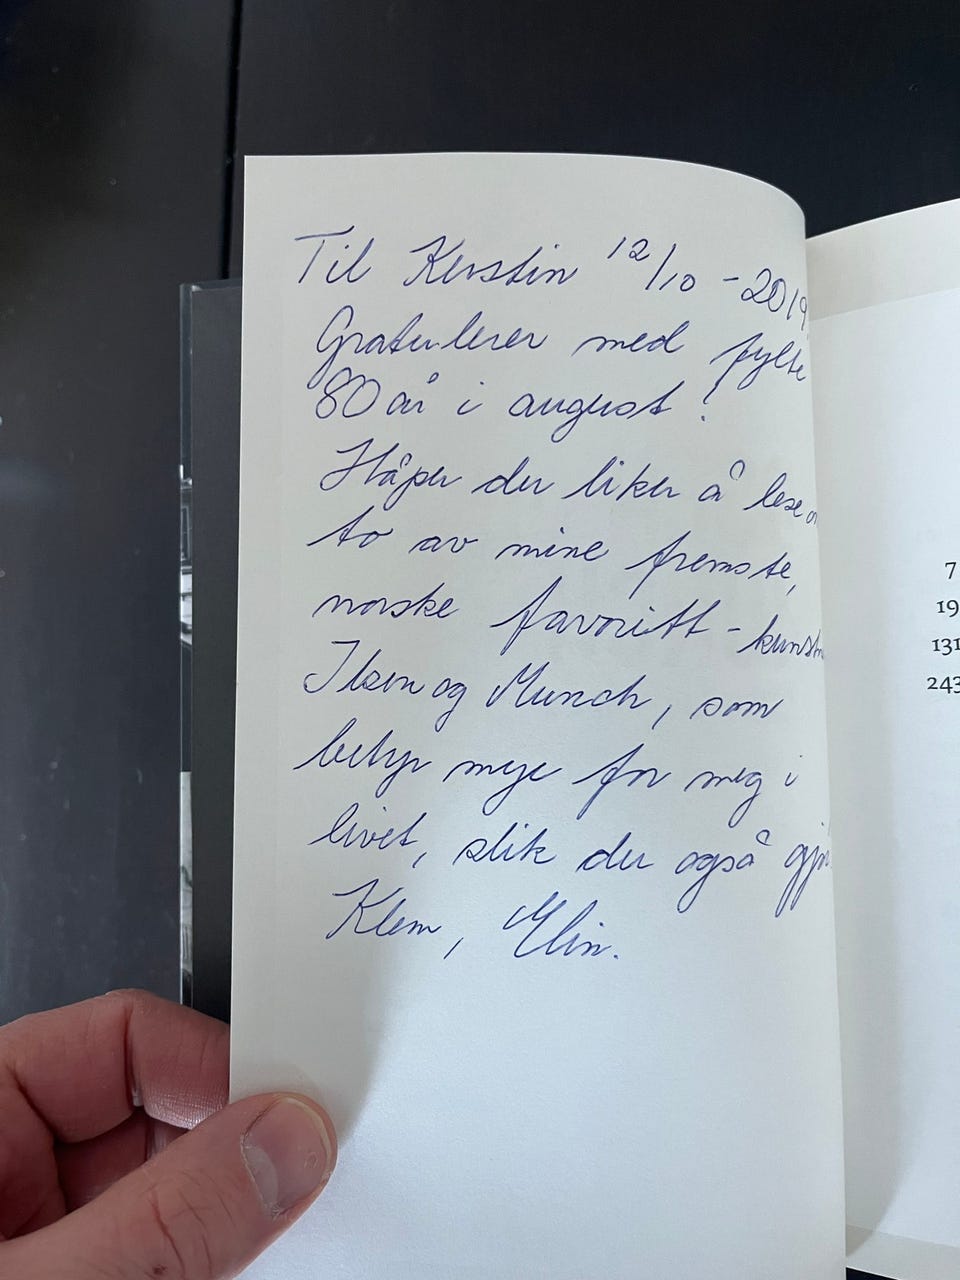 Til Kerstin 12/10 - 2019
Gratulerer med fylte
80 år i august!
Håper du liker å lese
to av mine fremste,
norske favoritt-
Ibsen og Munch, som
betyr mye for meg i
livet, slik du også
Klem, Elin.
7
19
131
243